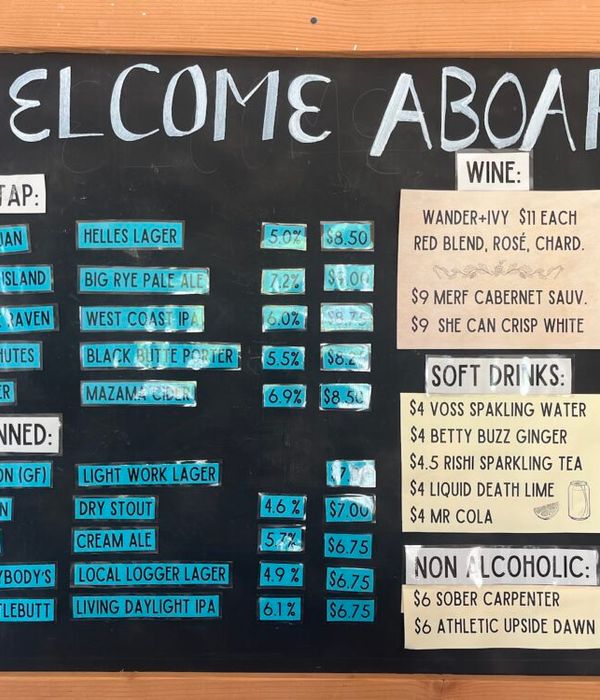 ELCOME ABOA
TAP:
HELLES LAGER 5.0% $8.50
ISLAND BIG RYE PALE ALE 7.2%
RAVEN WEST COAST IPA 6.0% $8.75
HUTES BLACK BUTTE PORTER 5.5%
ER MAZAMA CIDER 6.9% $8.50
NNED:
ON (GF) LIGHT WORK LAGER
N DRY STOUT 4.6 % $7.00
CREAM ALE 5.7% $6.75
YBODY'S LOCAL LOGGER LAGER 4.9 % $6.75
TLEBUTT LIVING DAYLIGHT IPA 6.1 % $6.75
WINE:
WANDER+IVY $11 EACH
RED BLEND, ROSÉ, CHARD.
$9 MERF CABERNET SAUV.
$9 SHE CAN CRISP WHITE
SOFT DRINKS:
$4 VOSS SPAKLING WATER
$4 BETTY BUZZ GINGER
$4.5 RISHI SPARKLING TEA
$4 LIQUID DEATH LIME
$4 MR COLA
NON ALCOHOLIC:
$6 SOBER CARPENTER
$6 ATHLETIC UPSIDE DAWN